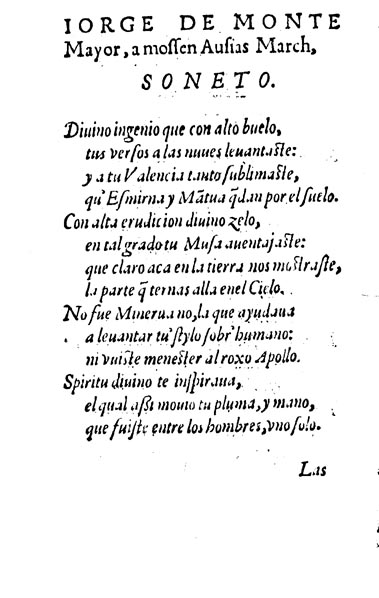 IORGE DE MONTE
Mayor, a mossen Ausias March,
SONETO.
Diuino ingenio que con alto buelo,
tus versos a las nuues leuantaste:
y a tu Valencia tanto sublimaste,
qu'Esmirna y Mãtua q̃dan por el suelo.
Con alta erudicion diuino zelo,
en tal grado tu Musa auentajaste:
que claro aca en la tierra nos mostraste,
la parte q̃ ternas alla enel Cielo.
No fue Minerua no, la que ayudaua
a leuantar tu'stylo sobr'humano:
ni vuiste menester al roxo Apollo.
Spiritu diuino te inspiraua,
el qual assi mouio tu pluma, y mano,
que fuiste entre los hombres, vno solo.
Las